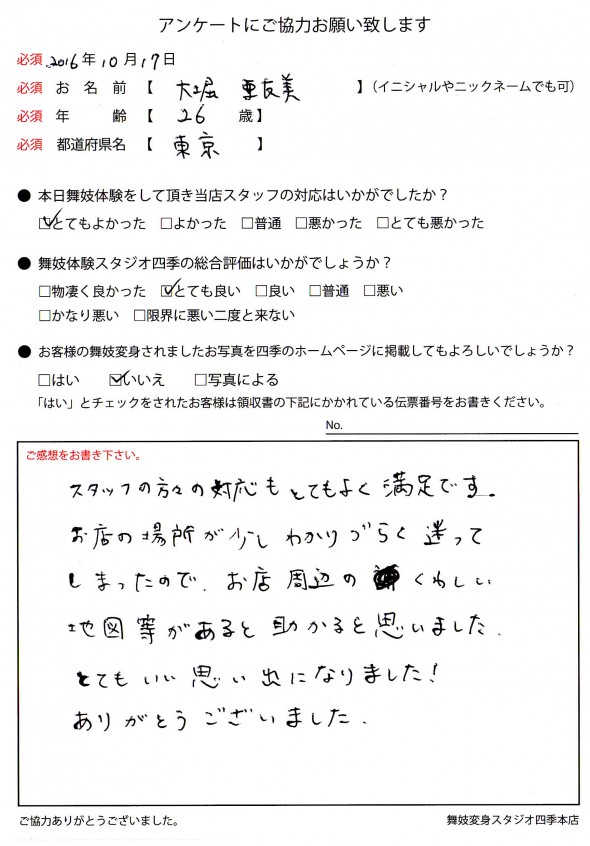 アンケートにご協力お願い致します
必須 2016年10月17日
必須 お名前【 大堀 亜友美 】（イニシャルやニックネームでも可）
必須 年齢【 26 歳】
必須 都道府県名【 東京 】
● 本日舞妓体験をして頂き当店スタッフの対応はいかがでしたか？
☑とてもよかった □よかった □普通 □悪かった □とても悪かった
● 舞妓体験スタジオ四季の総合評価はいかがでしょうか？
□物凄く良かった ☑とても良い □良い □普通 □悪い
□かなり悪い □限界に悪い二度と来ない
● お客様の舞妓変身されましたお写真を四季のホームページに掲載してもよろしいでしょうか？
□はい ☑いいえ □写真による
「はい」とチェックをされたお客様は領収書の下記にかかれている伝票番号をお書きください。
No.
ご感想をお書き下さい。
スタッフの方々の対応もとてもよく満足です。
お店の場所が少しわかりづらく迷って
しまったので、お店周辺のくわしい
地図等があると助かると思いました。
とてもいい思い出になりました！
ありがとうございました。
ご協力ありがとうございました。
舞妓変身スタジオ四季本店